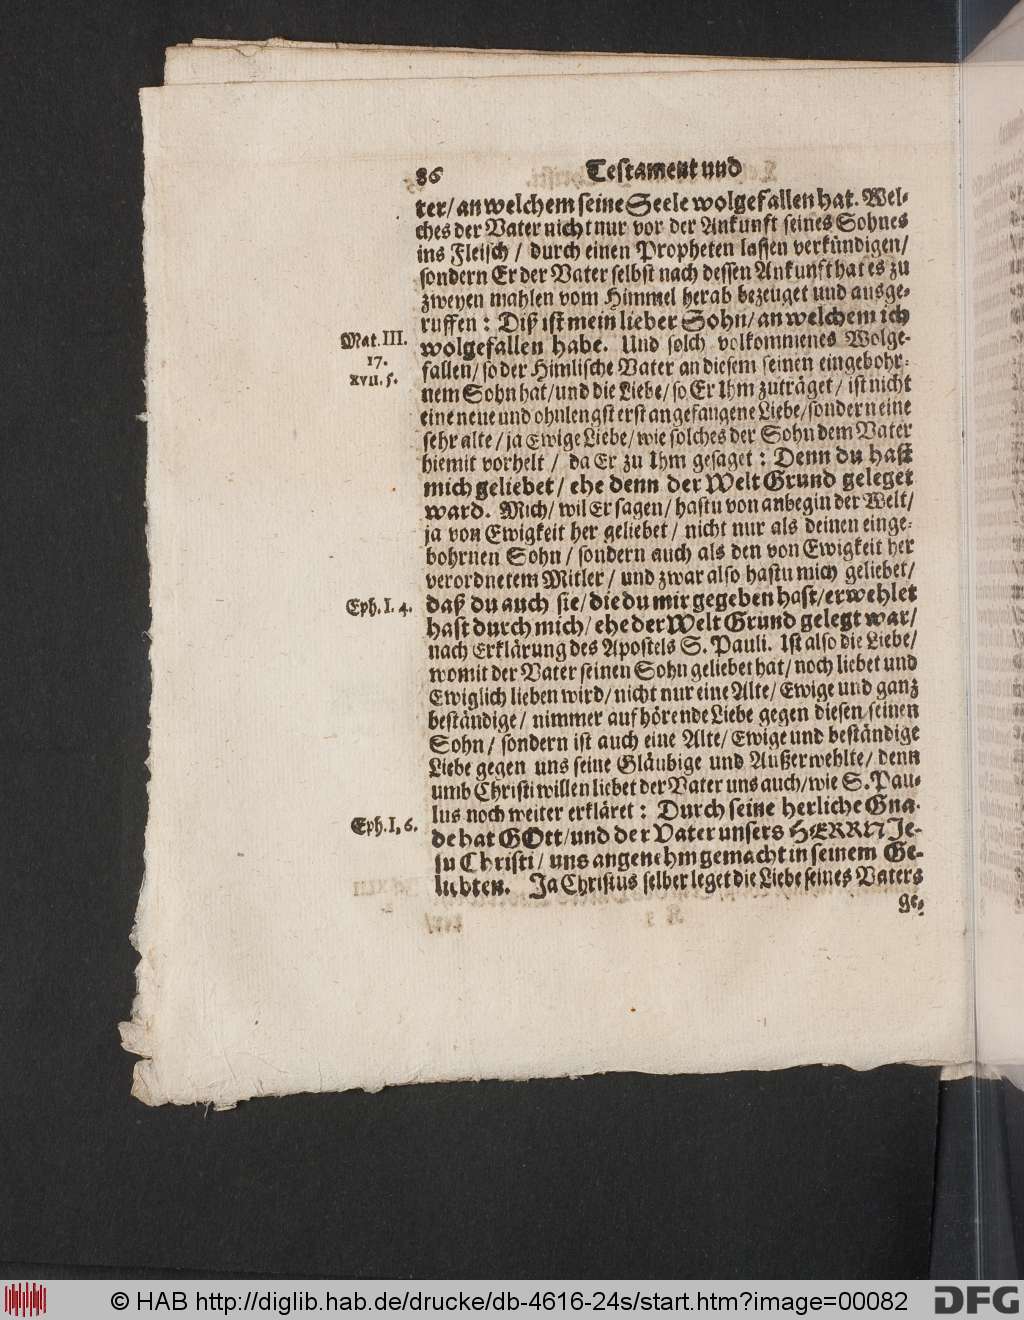 86 Testament und
ter/ an welchem seine Seele wolgefallen hat. Wel-
ches der Vater nicht nur vor der Ankunft seines Sohnes
ins Fleisch / durch einen Propheten lassen verkündigen/
sondern Er der Vater selbst nach dessen Ankunft hat es zu
zweyen mahlen vom Himmel herab bezeuget und ausge-
ruffen : Diß ist mein lieber Sohn/ an welchem ich
Mat. III.
17.
XVII. 5.
wolgefallen habe. Und solch volkommenes Wolge-
fallen/ so der Himlische Vater an diesem seinen eingebohr-
nem Sohn hat/ und die Liebe/ so Er Ihm zuträget/ ist nicht
eine neue und ohnlengst erst angefangene Liebe/ sondern eine
sehr alte/ ja Ewige Liebe/ wie solches der Sohn dem Vater
hiemit vorhelt / da Er zu Ihm gesaget : Denn du hast
mich geliebet/ ehe denn der Welt Grund geleget
ward. Mich/ wil Er sagen/ hastu von anbegin der Welt/
ja von Ewigkeit her geliebet/ nicht nur als deinen einge-
bohrnen Sohn/ sondern auch als den von Ewigkeit her
verordnetem Mitler/ und zwar also hastu mich geliebet/
Eph. I. 4.
daß du auch sie/ die du mir gegeben hast/ erwehlet
hast durch mich/ ehe der Welt Grund gelegt war/
nach Erklärung des Apostels S. Pauli. Ist also die Liebe/
womit der Vater seinen Sohn geliebet hat/ noch liebet und
Ewiglich lieben wird/ nicht nur eine Alte/ Ewige und ganz
beständige/ nimmer aufhörende Liebe gegen diesen seinen
Sohn/ sondern ist auch eine Alte/ Ewige und beständige
Liebe gegen uns seine Gläubige und Außerwehlte/ denn
umb Christi willen liebet der Vater uns auch/ wie S. Pau-
lus noch weiter erkläret : Durch seine herliche Gna-
Eph. I, 6.
de hat GOtt/ und der Vater unsers HERRN Je-
su Christi/ uns angenehm gemacht in seinem Ge-
liebten. Ja Christus selber leget die Liebe seines Vaters
ge-
© HAB http://diglib.hab.de/drucke/db-4616-24s/start.htm?image=00082
DFG